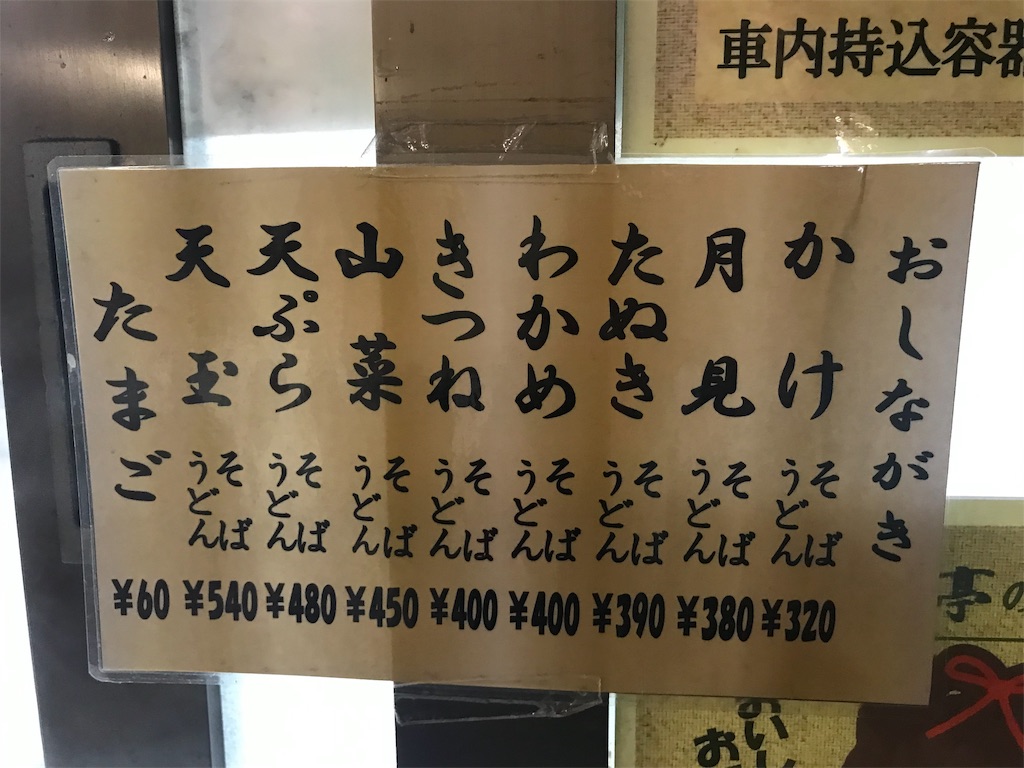 車内持込容器
おしながき
かけ そば うどん ¥320
月見 そば うどん ¥380
たぬき そば うどん ¥390
わかめ そば うどん ¥400
きつね そば うどん ¥400
山菜 そば うどん ¥450
天ぷら そば うどん ¥480
天玉 そば うどん ¥540
たまご ¥60
亭の
おいし
お